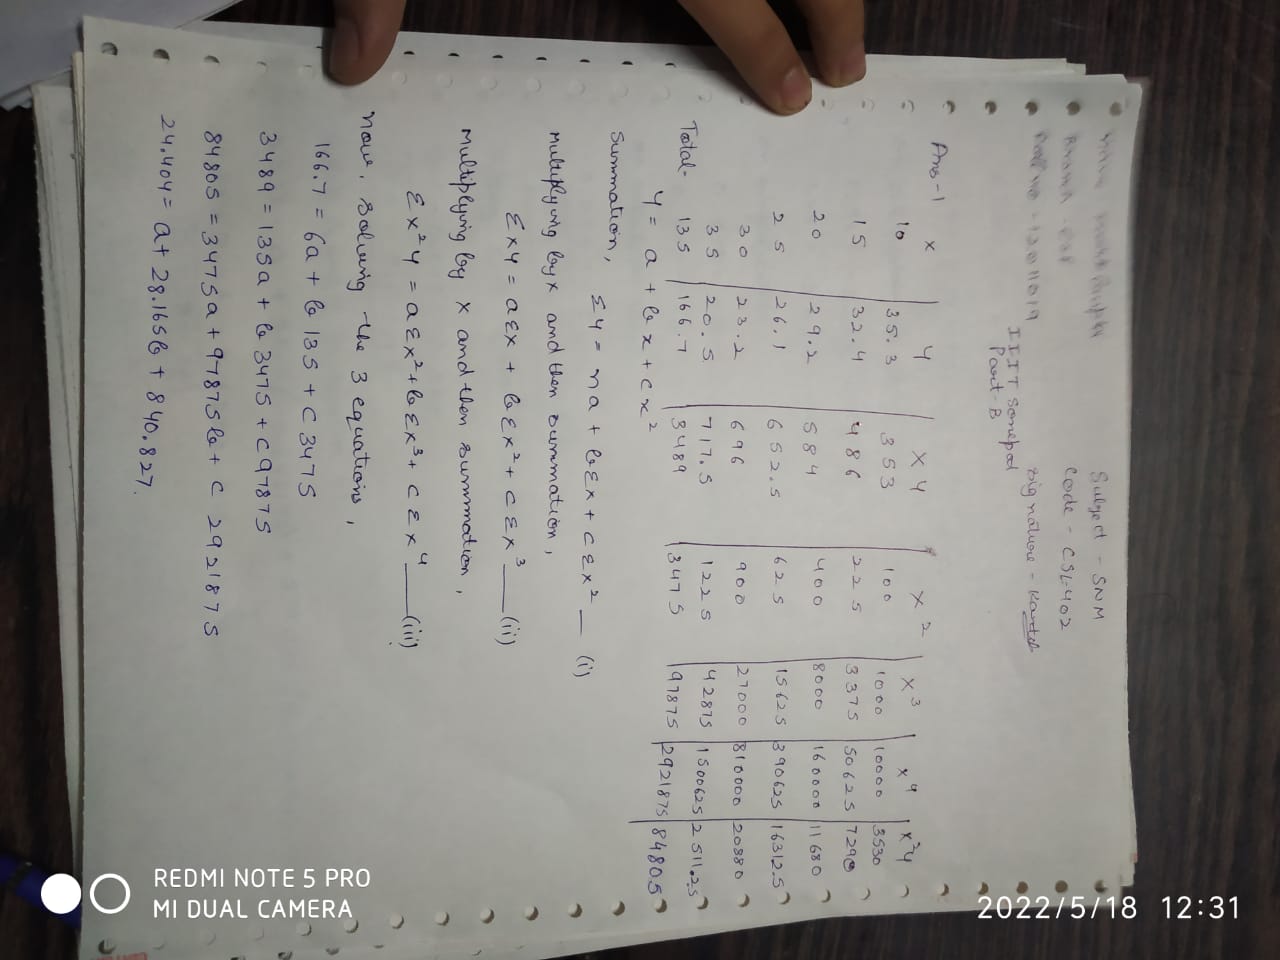 Subject - SNM
Branch - CSE
Code - CSL-402
Roll No - 12011019
Signature -
IIIT Sonepat
Part-B
Ans-1
x | y | xy | x² | x³ | x⁴ | x²y
10 | 35.3 | 353 | 100 | 1000 | 10000 | 3530
15 | 32.4 | 486 | 225 | 3375 | 50625 | 7290
20 | 29.2 | 584 | 400 | 8000 | 160000 | 11680
25 | 26.1 | 652.5 | 625 | 15625 | 390625 | 16312.5
30 | 23.2 | 696 | 900 | 27000 | 810000 | 20880
35 | 20.5 | 717.5 | 1225 | 42875 | 1500625 | 2511.25
Total- 135 | 166.7 | 3489 | 3475 | 97875 | 2921875 | 84805
y = a + bx + cx²
Summation,
Σy = na + bΣx + cΣx² — (i)
Multiplying by x and then summation,
Σxy = aΣx + bΣx² + cΣx³ — (ii)
Multiplying by x and then summmation,
Σx²y = aΣx² + bΣx³ + cΣx⁴ — (iii)
Now, solving the 3 equations,
166.7 = 6a + b 135 + c 3475
3489 = 135a + b 3475 + c 97875
84805 = 3475a + 97875b + c 2921875
24.404 = a + 28.165b + 840.827.
2022/5/18 12:31
REDMI NOTE 5 PRO
MI DUAL CAMERA